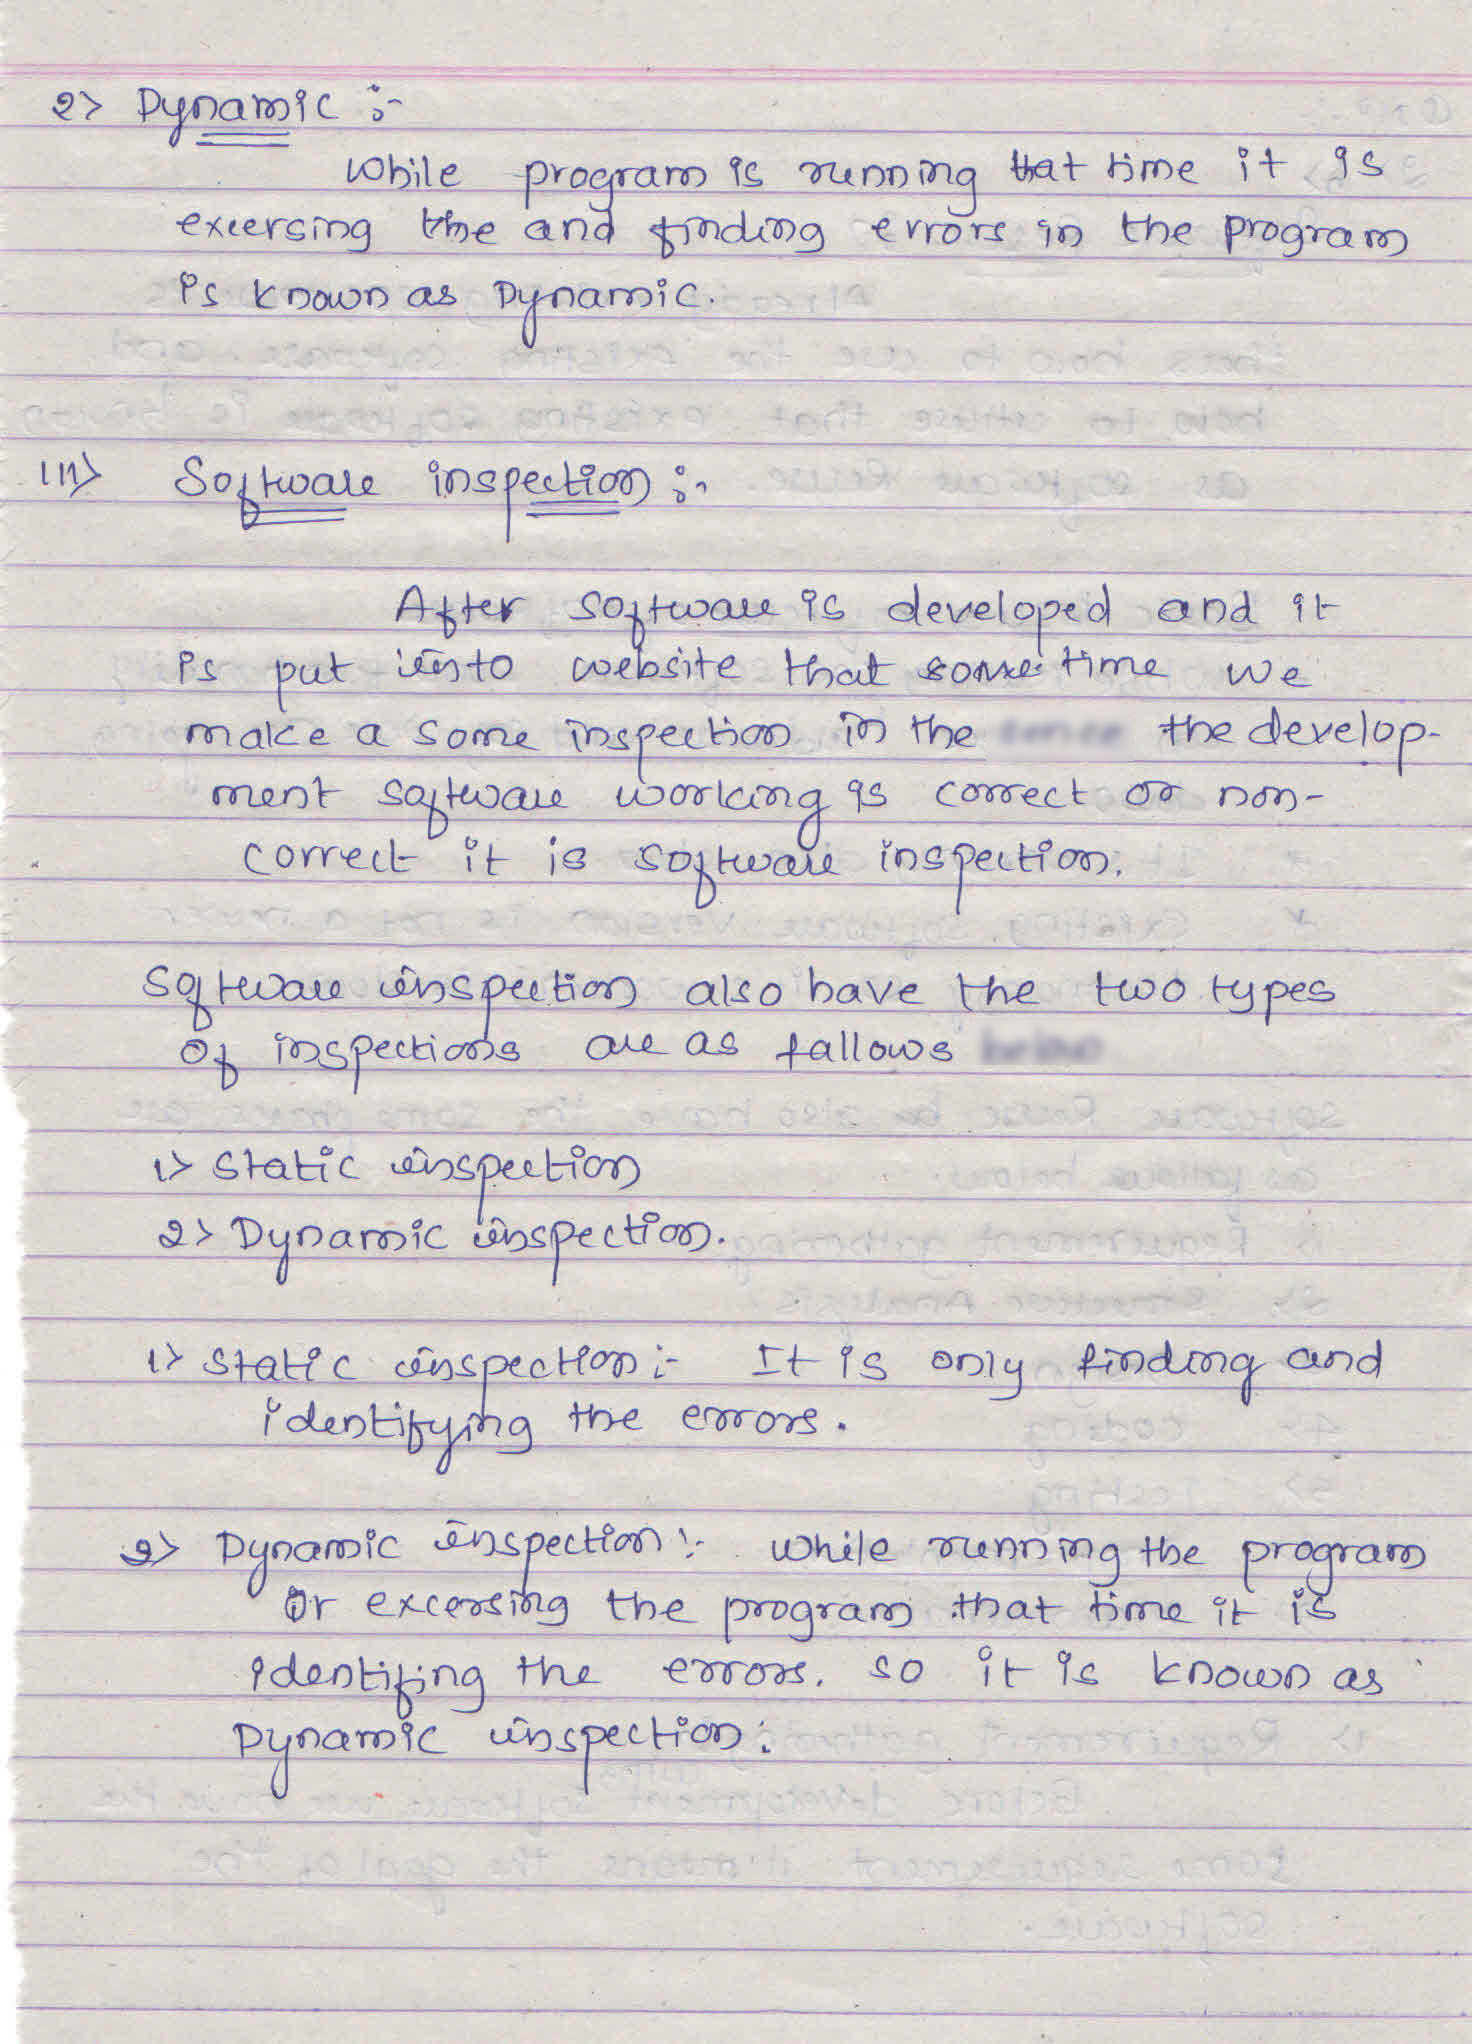 2> Dynamic :-
While program is running that time it is
excersing the and finding errors in the program
is known as Dynamic.
III> Software inspection :-
After software is developed and it
is put into website that some time we
make a some inspection in the the develop-
ment software working is correct or non-
correct it is software inspection.
Software inspection also have the two types
of inspections are as fallows
1> Static inspection
2> Dynamic inspection.
1> Static inspection :- It is only finding and
identifying the errors.
2> Dynamic inspection :- While running the program
Or excersing the program that time it is
identifing the errors. so it is known as
Dynamic inspection.